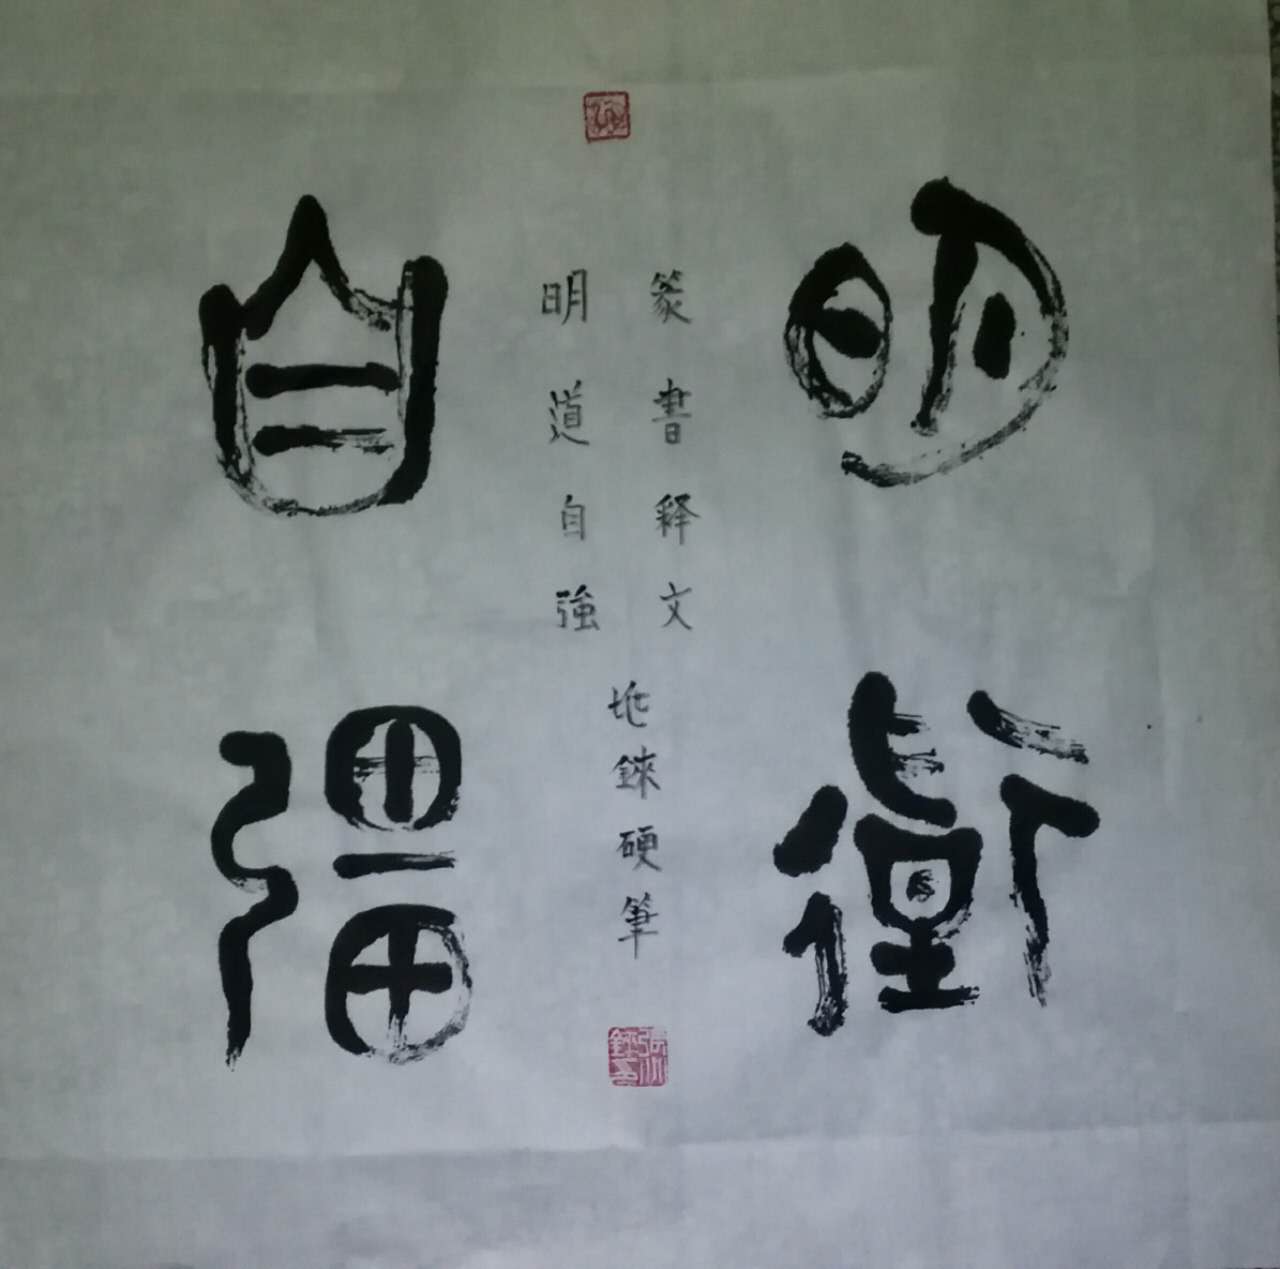 明道
自彊
篆書释文
明道自強
地錸硬筆